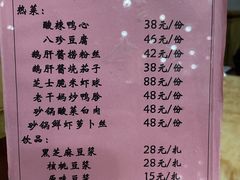 热菜:
酸辣鸭心 38元/份
八珍豆腐 45元/份
鹅肝酱捞粉丝 42元/份
鹅肝酱烧茄子 38元/份
芝士脆米虾球 88元/份
老干妈炒鸭胗 48元/份
砂锅酸菜白肉 48元/份
砂锅鲜虾萝卜丝 48元/份
饮品:
黑芝麻豆浆 28元/扎
核桃豆浆 28元/扎
原味豆浆 15元/扎